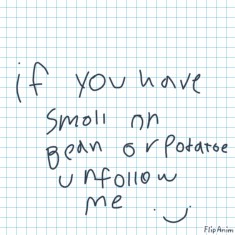 if you have
smoll on
Bean or Potatoe
unfollow
me :)
FlipAnim